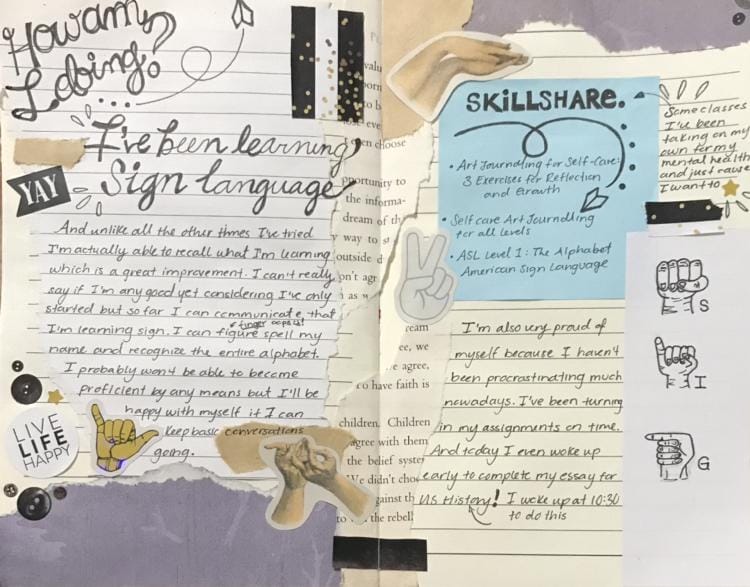 How am
I doing?
I've been learning
Sign language
YAY
And unlike all the other times I've tried
I'm actually able to recall what I'm learning
which is a great improvement. I can't really
say if I'm any good yet considering I've only
started but so far I can communicate that
I'm learning sign. I can figure spell my
*finger oops!
name and recognize the entire alphabet.
I probably won't be able to become
proficient by any means but I'll be
happy with myself if I can
keep basic conversations
going.
LIVE
LIFE
HAPPY
valu
born
to b
eve
en choose
pportunity to
the informa-
dream of th
way to st
outside d
on't agr
as w
ream
ee, we
agree,
o have faith is
children. Children
agree with them
the belief syste
We didn't cho
gainst th
the rebell
SKILLSHARE.
• Art Journdling for Self-Care:
3 Exercises for Reflection
and Growth
• Self care Art Journdling
for all levels
• ASL Level 1: The Alphabet
American Sign Language
Some classes
I've been
taking on my
own for my
mental health
and just cause
I want to
I'm also very proud of
myself because I haven't
been procrastinating much
nowadays. I've been turning
in my assignments on time.
And today I even woke up
early to complete my essay for
US History! I woke up at 10:30
to do this
S
I
G